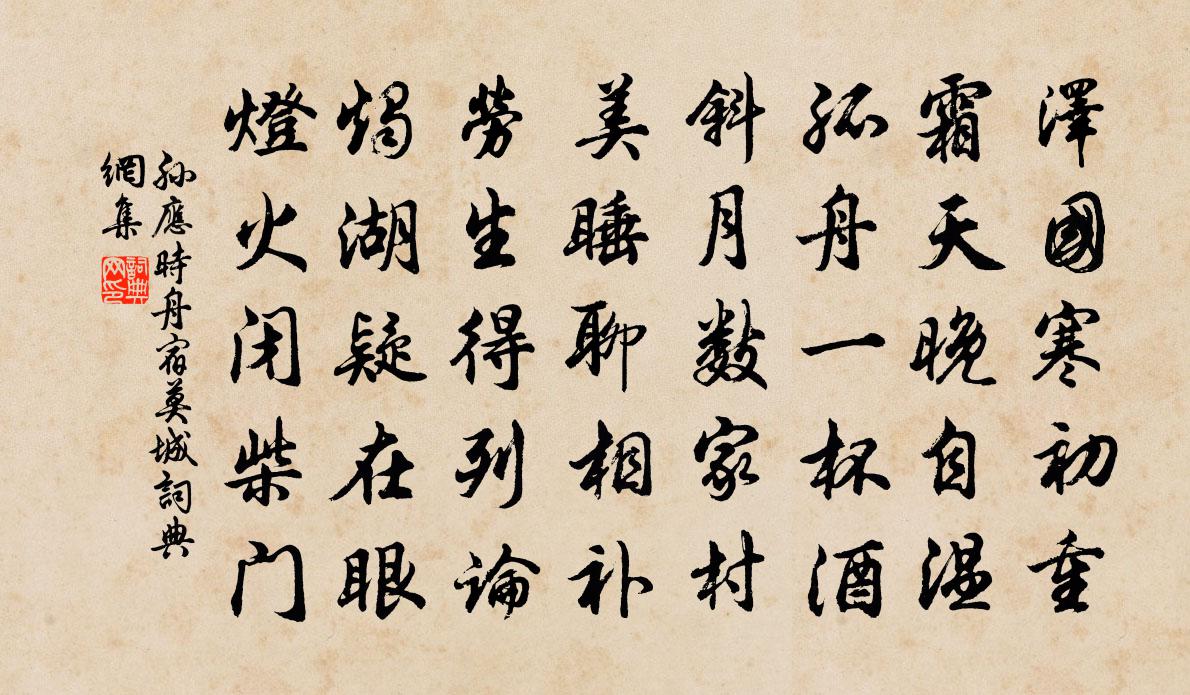 澤國寒初重
霜天晚自温
孤舟一杯酒
斜月數家村
美睡聊相补
勞生得列論
燭湖疑在眼
燈火闭柴门
孙應時舟宿莫城詞典
網集
詞典
网印